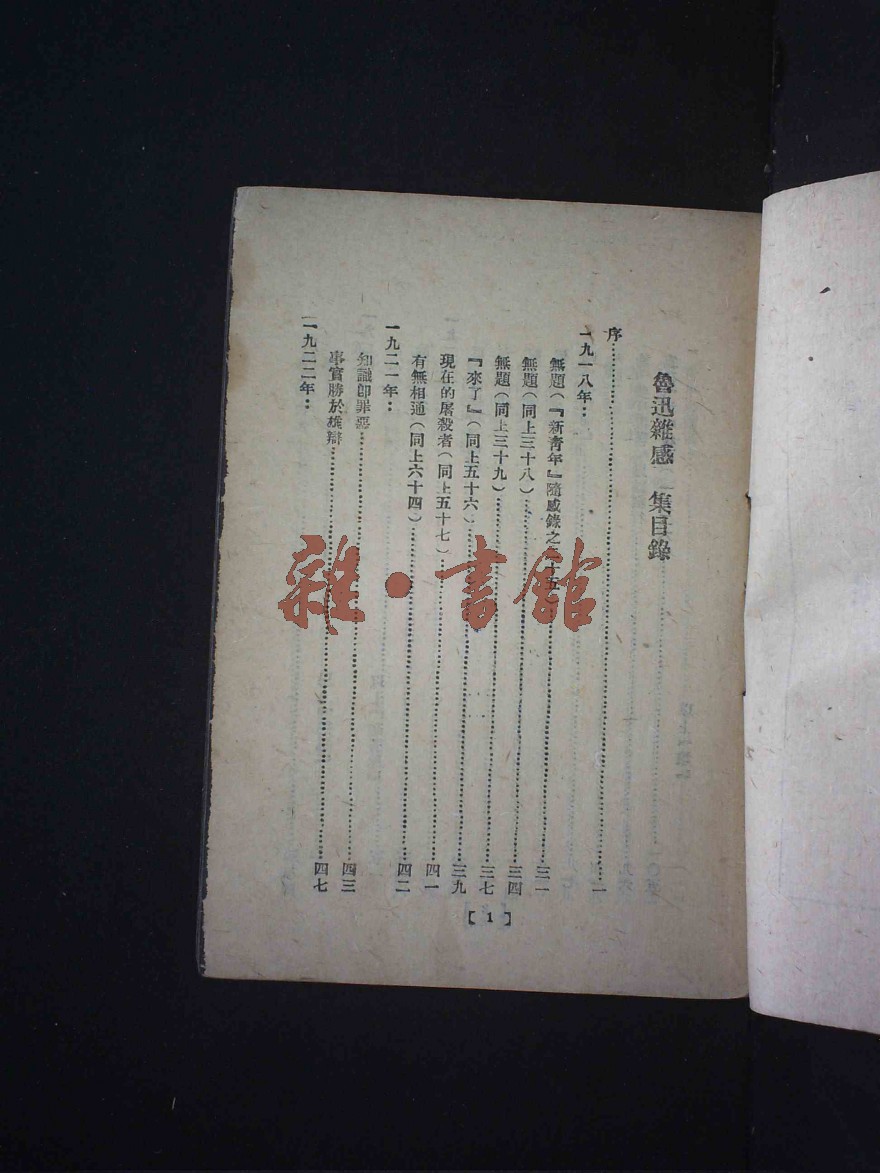 魯迅雜感 集目錄
序……一
一九一八年：
無題（『新青年』隨感錄之三十五）……三一
無題（同上三十八）……三四
無題（同上三十九）……三七
『來了』（同上五十六）……三九
現在的屠殺者（同上五十七）……四一
有無相通（同上六十四）……四二
一九二一年：
知識即罪惡……四三
事實勝於雄辯……四七
一九二二年：
[1]
雜·書館